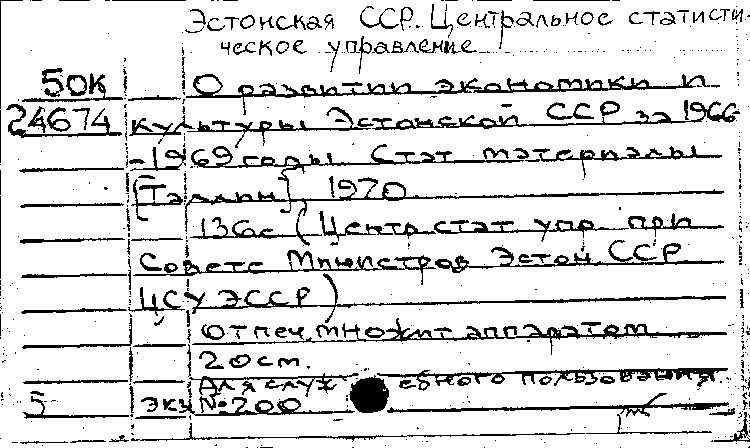 Эстонская ССР. Центральное статисти-
ческое управление
50К О развитии экономики и
24674 культуры Эстонской ССР за 1966-
-1969 годы. Стат материалы
[Таллин], 1970
136с (Центр. стат упр. при
Совете Министров Эстон. ССР
ЦСУ ЭССР)
Отпеч. множит аппаратом
20 см.
Для служебного пользования.
5 экз №200